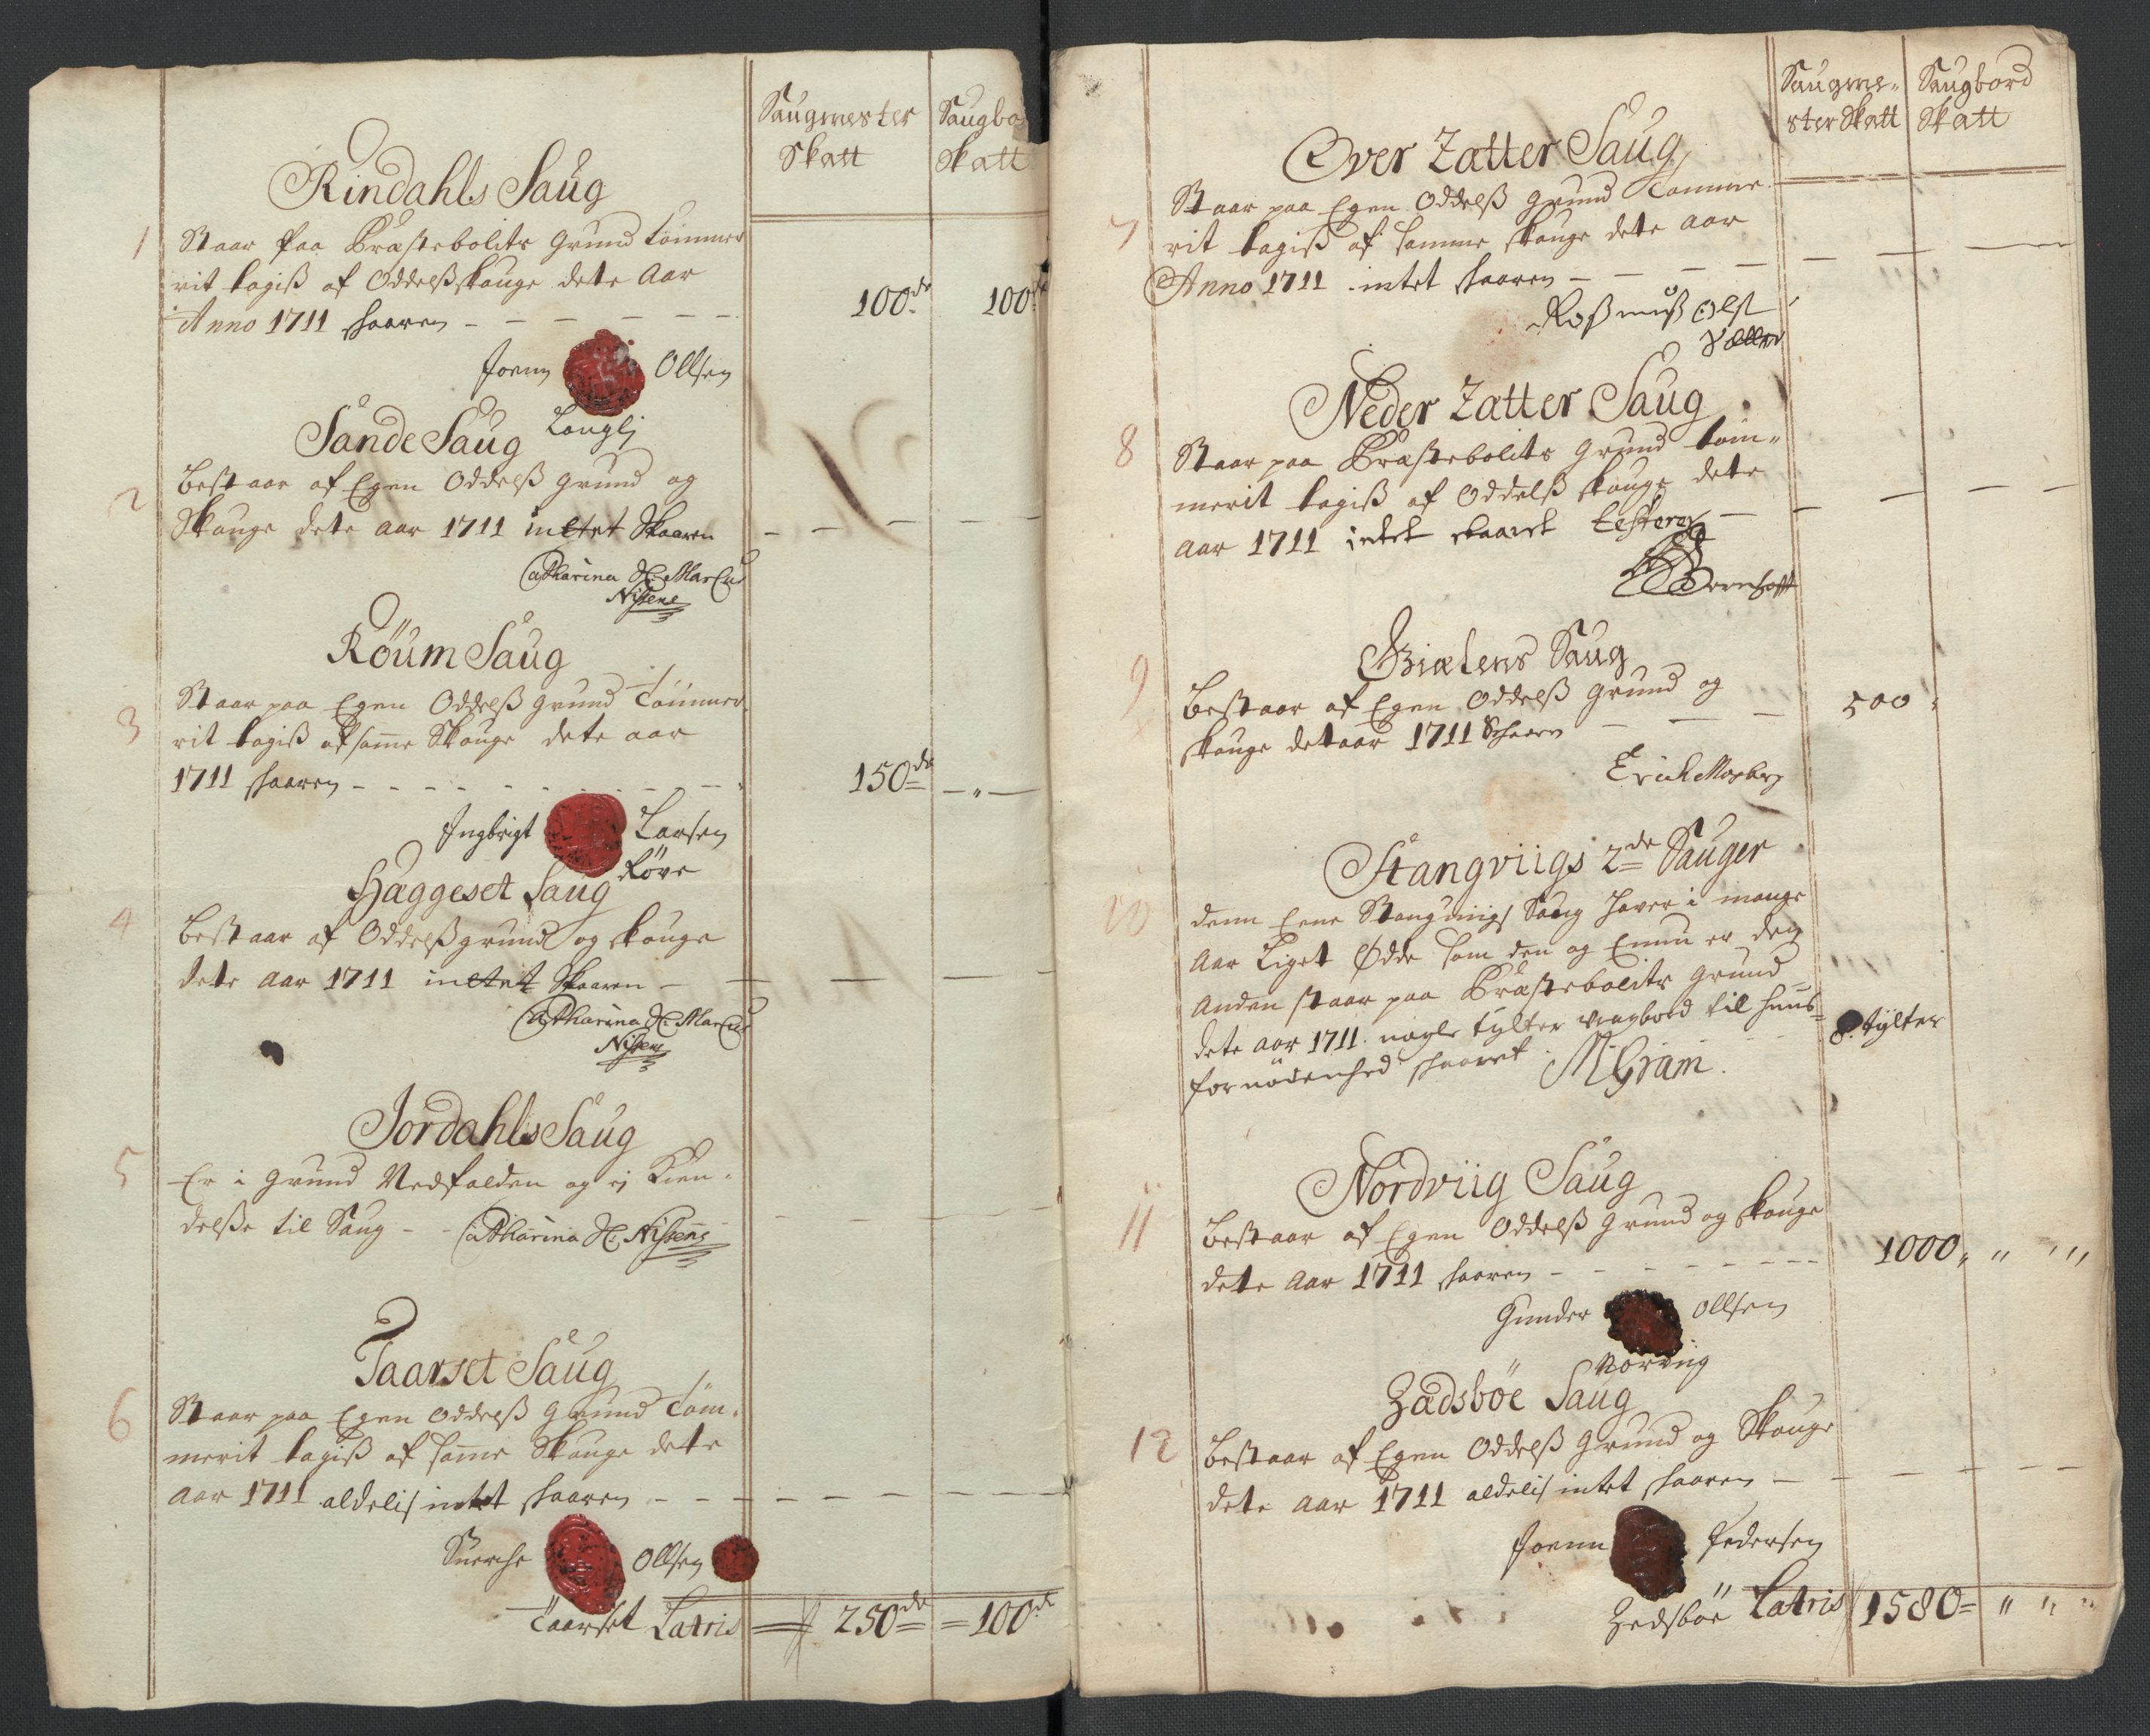 Saugmester
Skatt
Saugbo
Skatt
Rindahls Saug
1
Staar paa Præstebolits Grund Tømmer
rit tagiß af Oddelßskouge dete Aar
Anno 1711 skaaren
100de
100de
Joenn Ollsen
Langlj
Sande Saug
2
Bestaar af Egen Oddelß grund og
Skouge dete aar 1711 intet Skaaren
Catharina Sl. Marcus
Nissens
Røum Saug
3
Staar paa Egen Oddelß grund Tømmer
rit tagiß af samme Skouge dete aar
1711 skaaren
150de
Ingbrigt Larsen
Røve
Hæggeset Saug
4
Bestaar af Oddelßgrund og skouge
dete Aar 1711 intet Skaaren
Catharina Sl. Marcus
Nissens
Jordahls Saug
5
Er i Grund Nedfalden og ej Kien-
delße til Saug Catharina Sl. Nissens
Taarset Saug
6
Staar paa Egen Oddelß Grund Tøm-
merit tagiß af samme Skouge dete
Aar 1711 aldelis intet skaaren
Suerche Ollsen
Taarset Latris 250de 100de
Saugme-
ster Skatt
Saugbord
Skatt
Over Zatter Saug
7
Staar paa Egen Oddelß grund Tømme-
rit tagiß af samme skouge dete aar
Anno 1711 intet skaaren
Roßmuß Olß
Neder Zatter Saug
8
Staar paa Præstebolits Grund tøm-
merit tagiß af Oddelß skouge dete
aar 1711 intet skaaret testerer
Bernhoft
Giælens Saug
9
Bestaar af Egen Oddelß Grund og
skouge detaar 1711 Skaaren
500
Erich Mosberg
Stangviigs 2de Sauger
10
denn Eene Stangviigs Saug haver i mange
Aar Liget Ødde som den og Ennu er den
Anden staar paa Præstebolits Grund
dete aar 1711 nogle tylter vragbord til huus-
fornødenhed skaaret
8 tylter
M Gram
Nordviig Saug
11
Bestaar af Egen Oddelß Grund og skouge
dete Aar 1711 skaaren
1000
Gunder Ollsen
Norviig
Zædsbøe Saug
12
Bestaar af Egen Oddelß Grund og Skouge
dete Aar 1711 aldelis intet skaaren
Joenn Pedersen
Zedsbøe Latris 1580